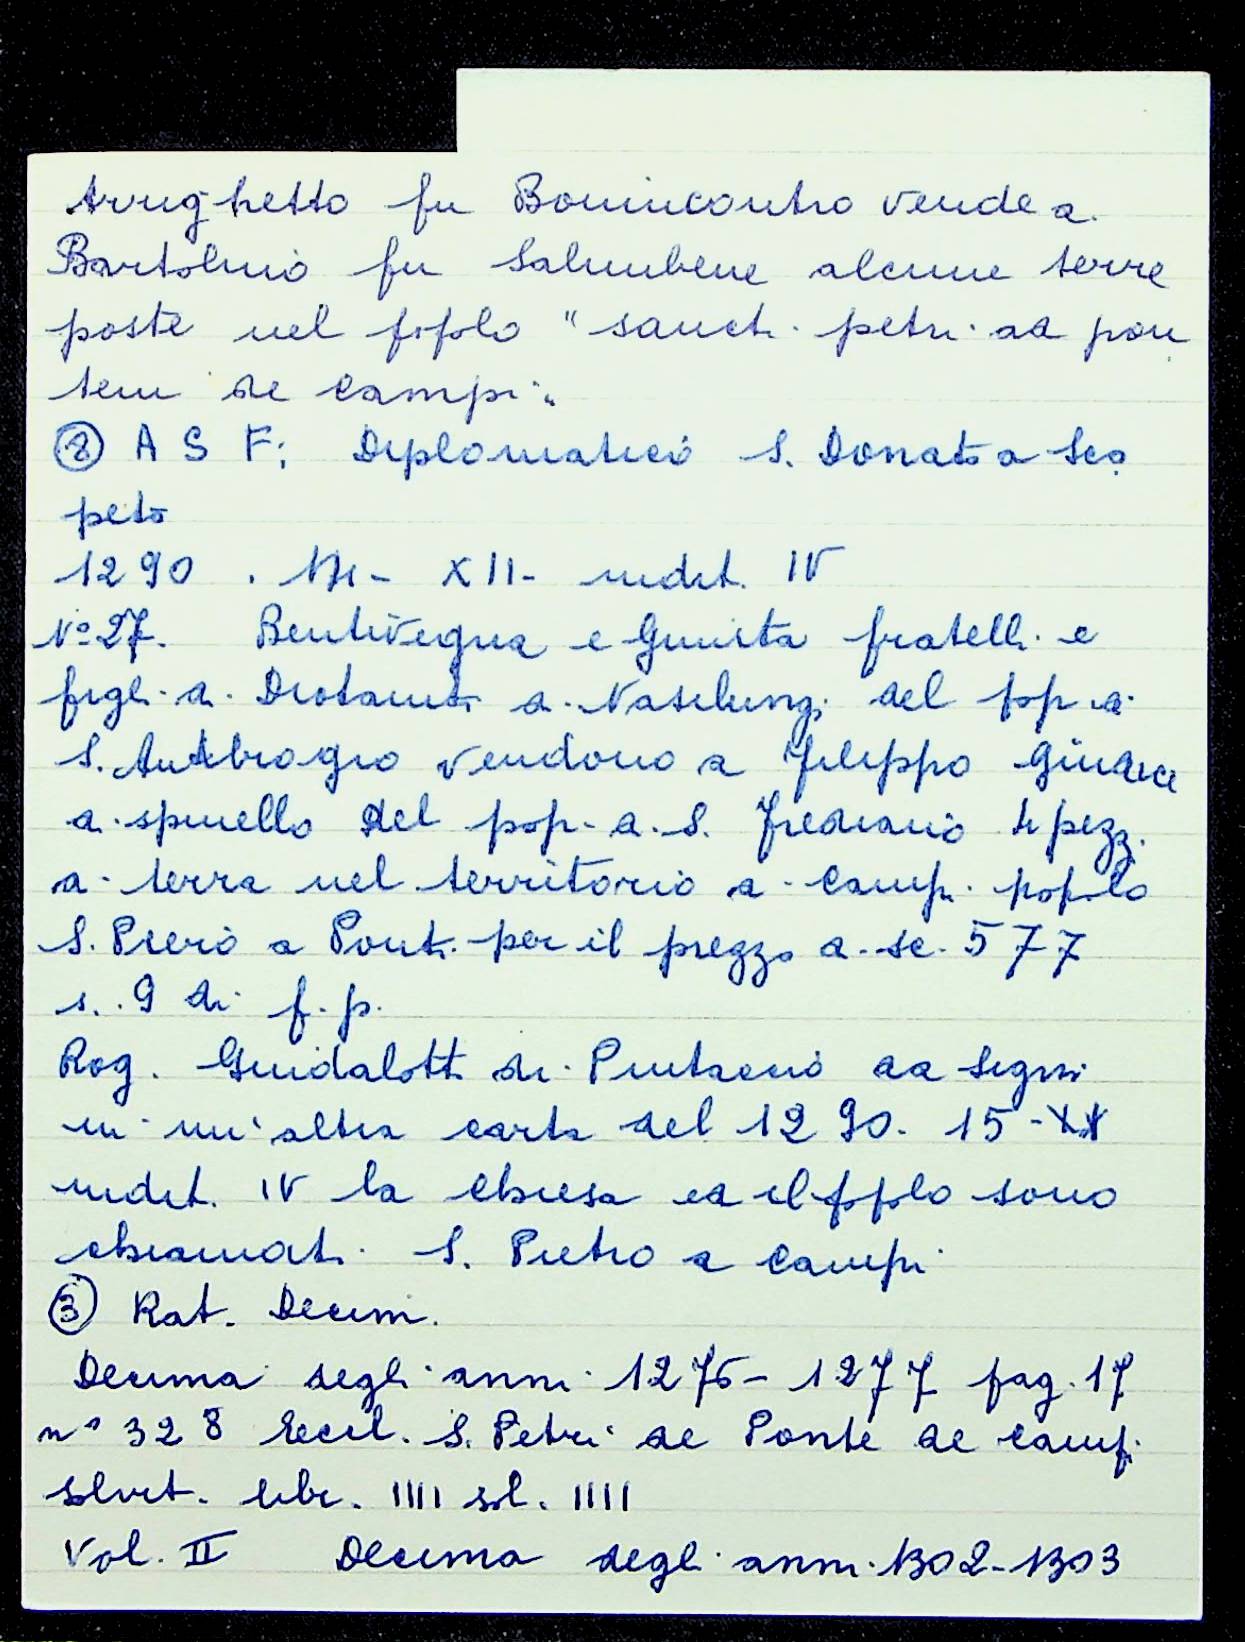 Arrighetto fu Bonincontro vende a
Bartolino fu Salimbene alcune terre
poste nel popolo "sancti petri ad pon
tem de Campi"
② A S F; Diplomatico S. Donato a Sco
peto
1290. XII - indit. IV
N° 27. Bentivegna e Giunta fratelli e
figli di Diotaiuti di Vasilungi del pop. di
S. Ambrogio vendono a Filippo Giudice
di Spinello del pop. di S. Frediano 4 pezzi
di terra nel territorio di Campi popolo
S. Piero a Ponti per il prezzo di sc. 577
s. 9 di f. p.
Rog. Guidalotti di Pintaccio da Signi
in un'altra carta del 1290. 15 -
indit. IV la chiesa ed il popolo sono
chiamati S. Pietro a Campi
③ Rat. Decim.
Decima degli anni 1276-1277 pag. 17
n° 328 Eccl. S. Petri de Ponte de Campi
solvit. libr. IIII sol. IIII
Vol. II Decima degli anni 1302-1303